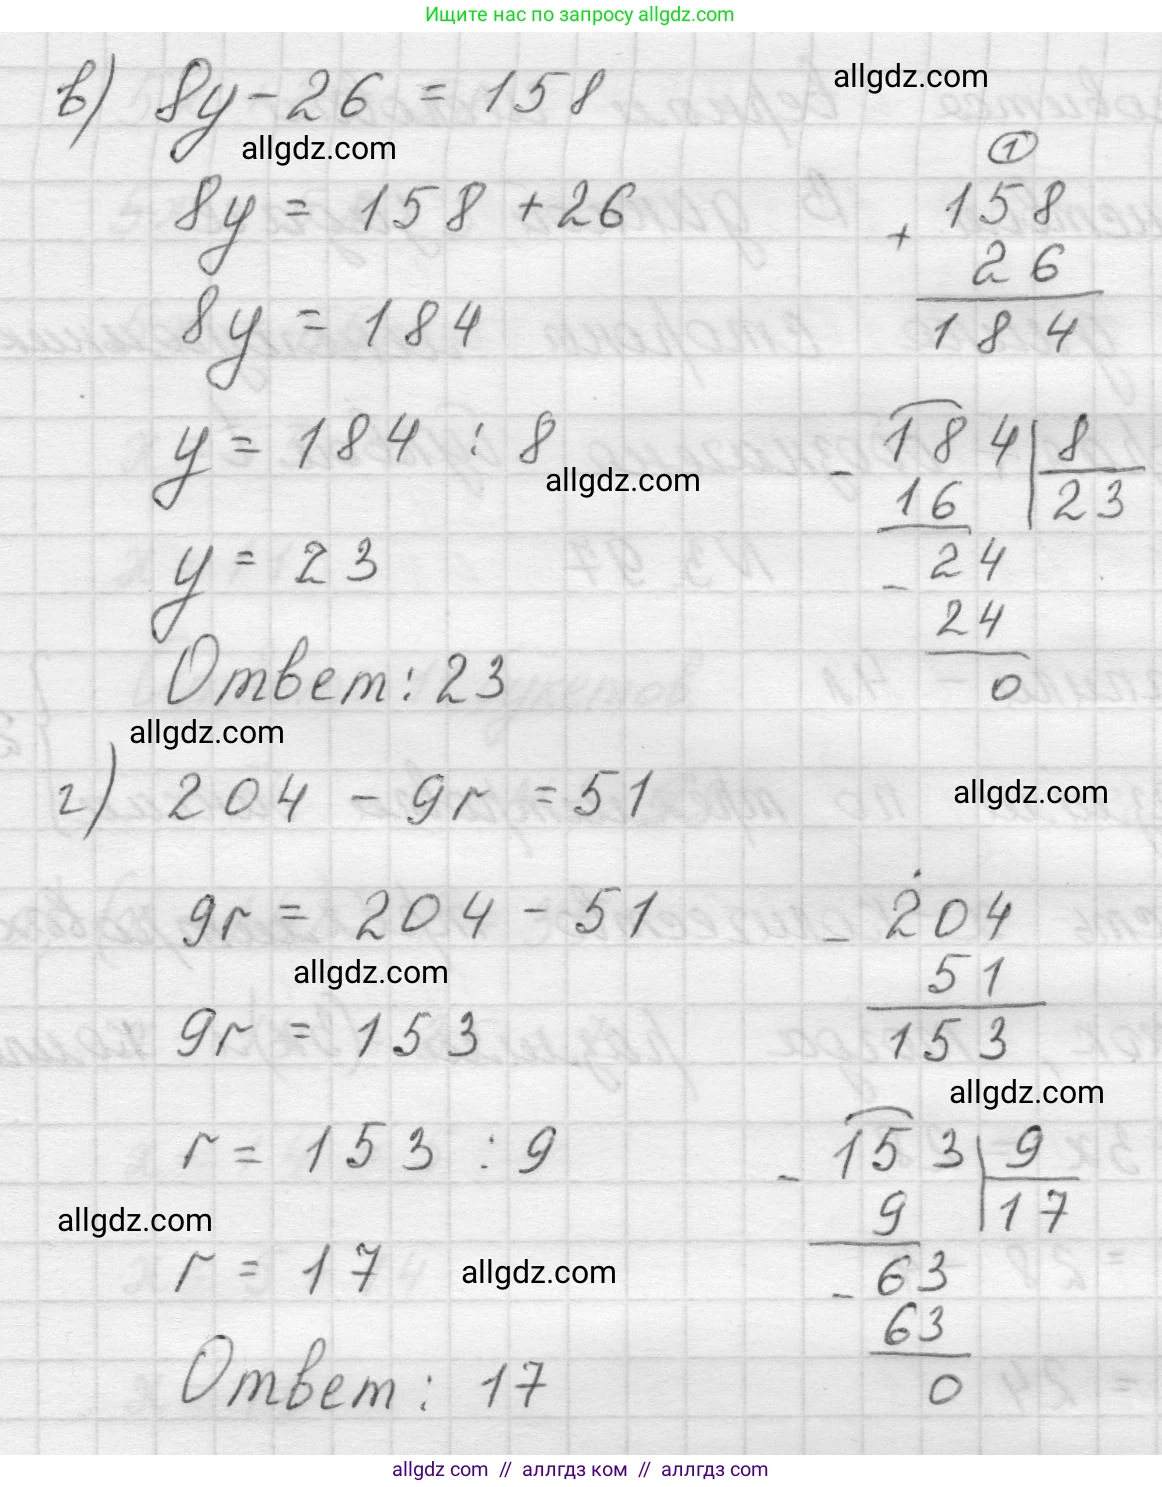 Ищите нас по запросу allgdz.com
в) 8y - 26 = 158
allgdz.com
allgdz.com
8y = 158 + 26
1
+ 158
26
184
8y = 184
y = 184 : 8
allgdz.com
- 184 8
16 23
- 24
24
0
y = 23
Ответ: 23
allgdz.com
г) 204 - 9r = 51
allgdz.com
9r = 204 - 51
allgdz.com
- 204
51
153
9r = 153
allgdz.com
r = 153 : 9
allgdz.com
- 153 9
9 17
- 63
63
0
r = 17
allgdz.com
Ответ: 17
allgdz com // аллгдз ком // allgdz com